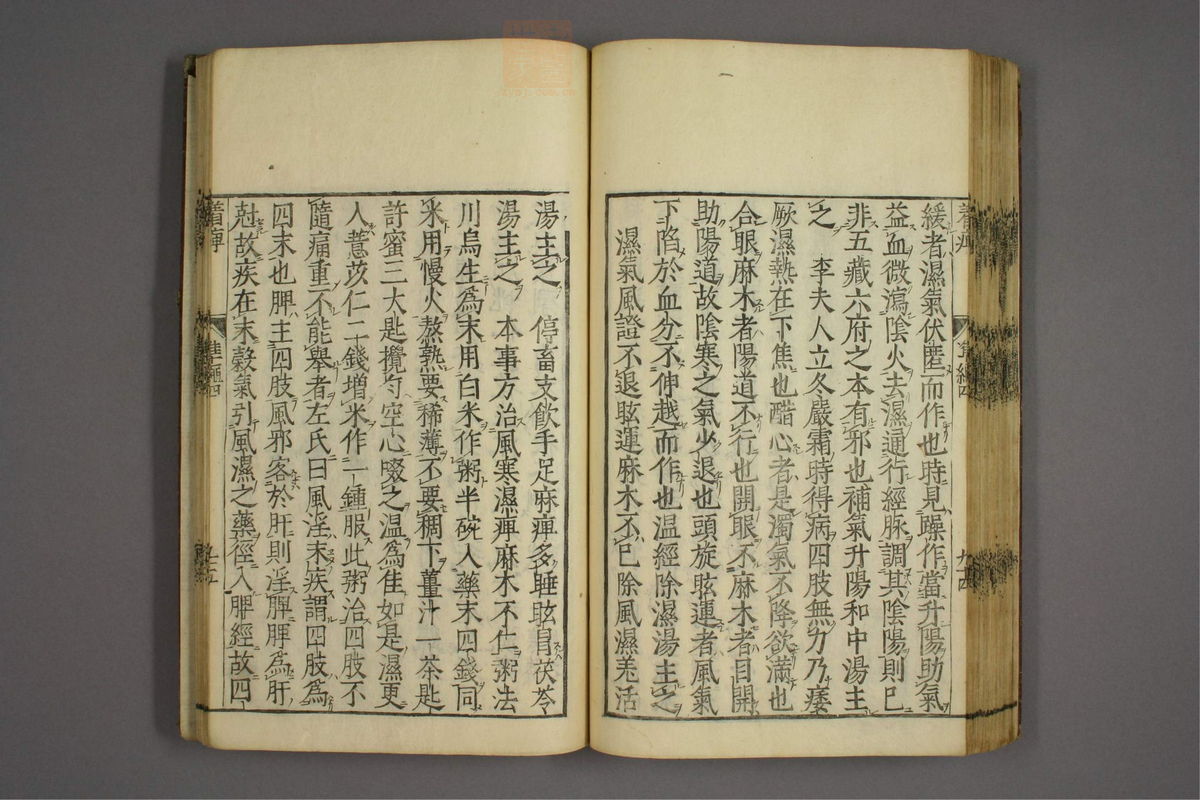 緩者濕氣伏匿而作也時見躁作當升陽助氣
益血微瀉陰火去濕通行經脉調其陰陽則已
非五藏六府之本有邪也補氣升陽和中湯主
之　李夫人立冬嚴霜時得病四肢無力乃痿
厥濕熱在下焦也醋心者是濁氣不降欲滿也
合眼麻木者陽道不行也開眼不麻木者目開
助陽道故陰寒之氣少退也頭旋眩運者風氣
下陷於血分不伸越而作也温經除濕湯主之
濕氣風證不退眩運麻木不已除風濕羌活
湯主之　停畜支飲手足麻痺多睡眩冒茯苓
湯主之　本事方治風寒濕痺麻木不仁粥法
川烏生爲末用白米作粥半碗入藥末四錢同
米用慢火熬熟要稀薄不要稠下薑汁一茶匙
許蜜三大匙攪匀空心啜之温爲佳如是濕更
入薏苡仁二錢増米作一鍾服此粥治四肢不
隨痛重不能舉者左氏曰風淫末疾謂四肢爲
四末也脾主四肢風邪客於肝則淫脾脾爲肝
尅故疾在末穀氣引風濕之藥徑入脾經故四
着痺
準繩四